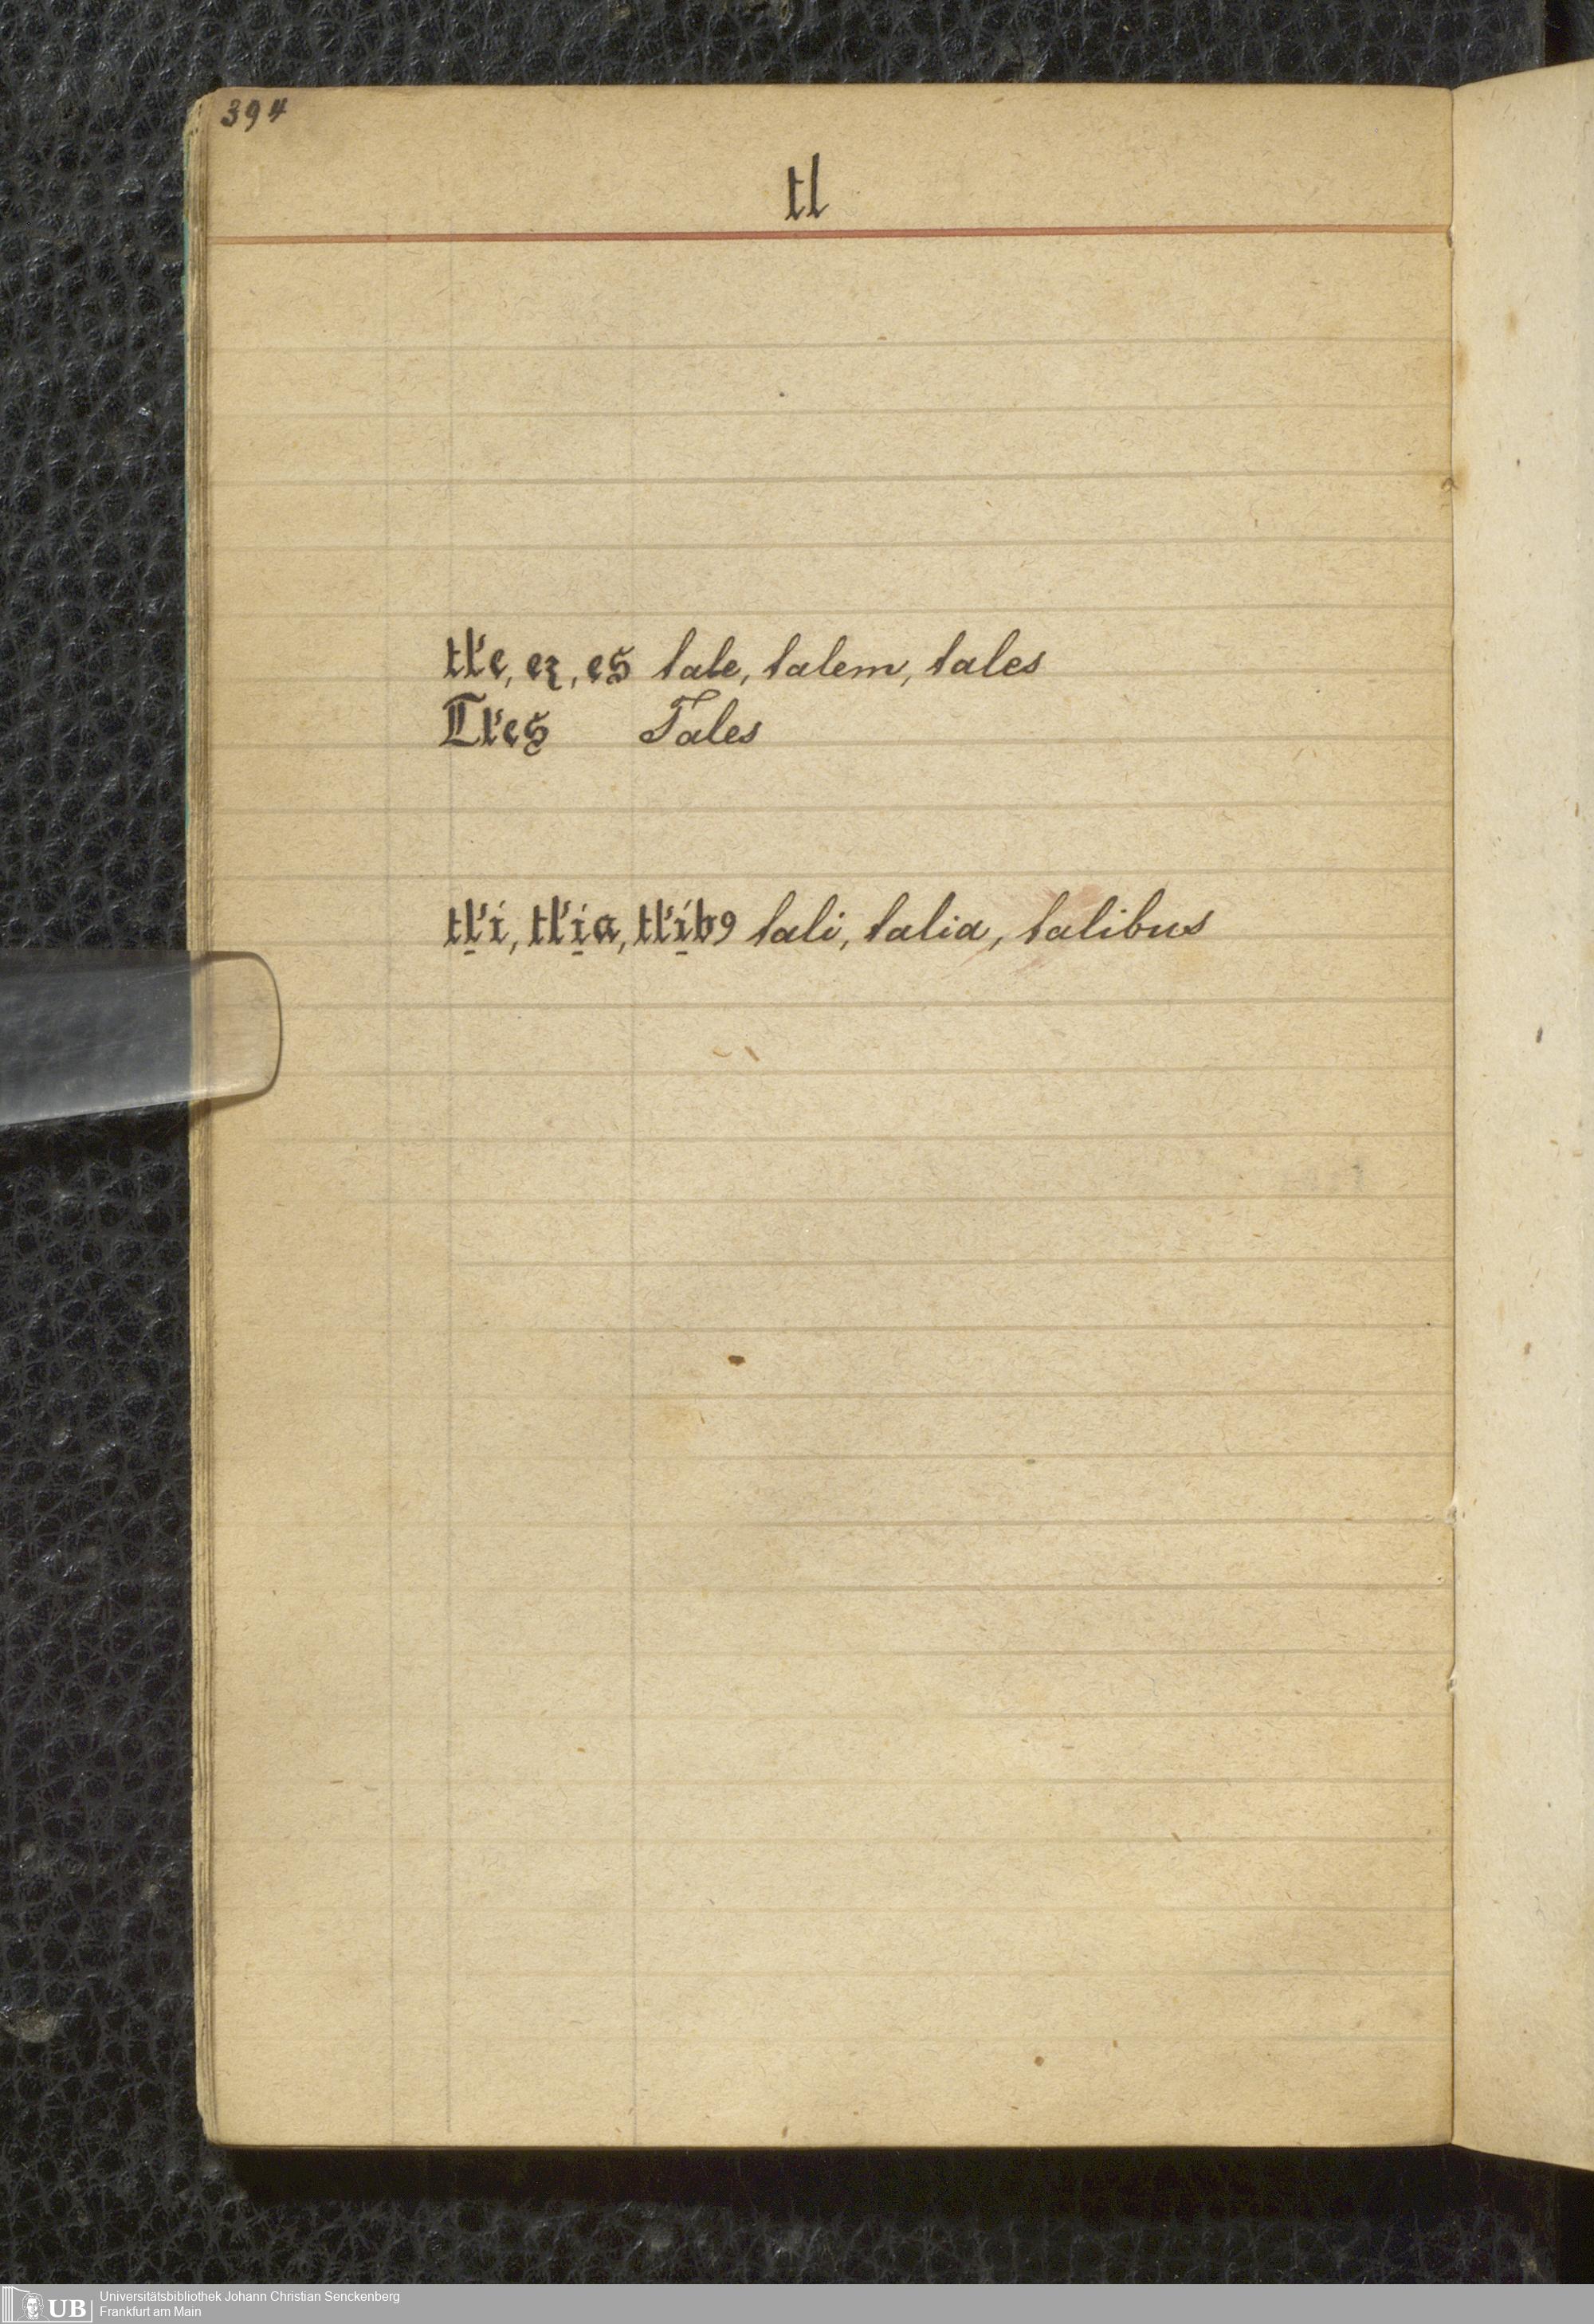 394
tl
tl̛e, eꝝ, es tale, talem, tales
Tl̛es Tales
tl̛i, tl̛ia, tl̛ibꝰ tali, talia, talibus
UB
Universitätsbibliothek Johann Christian Senckenberg
Frankfurt am Main